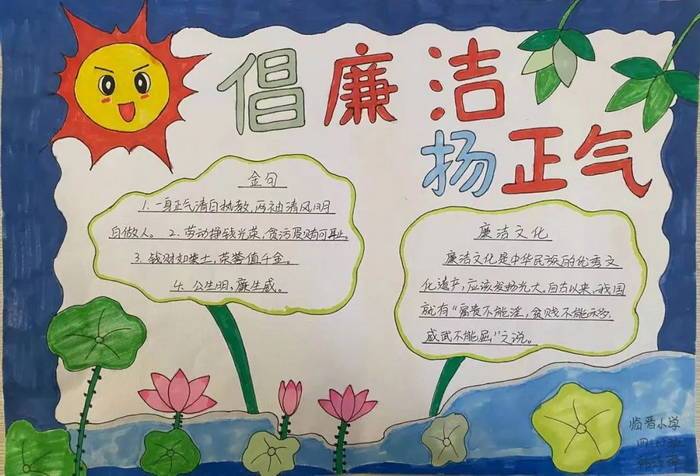 倡廉洁
扬正气
金句
1. 一身正气清白执教,两袖清风明
白做人。2. 劳动挣钱光荣,贪污受贿可耻。
3. 钱财如粪土,荣誉值千金。
4. 公生明,廉生威。
廉洁文化
廉洁文化是中华民族的优秀文
化遗产,应该发扬光大,自古以来,我国
就有“富贵不能淫,贫贱不能移,
威武不能屈,”之说。
临晋小学